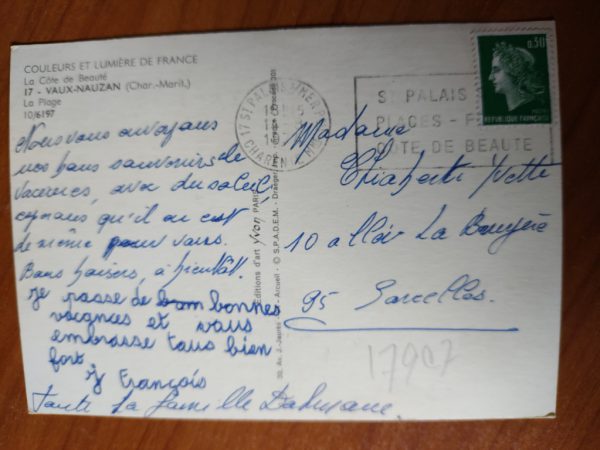 COULEURS ET LUMIÈRE DE FRANCE
La Côte de Beauté
17 - VAUX-NAUZAN (Char.-Marit.)
La Plage
10/6197
Nous vous envoyons
nos bons souvenirs de
vacances, avec du soleil,
espérons qu'il en est
de même pour vous.
Bons baisers, à bientôt.
je passe de bonnes
vacances et vous
embrasse tous bien
fort
François
Toute la famille
Editions d'art Yvon PARIS
30, Av. J.-Jaurès - Arcueil - © S.P.A.D.E.M.
17 ST PALAIS S/MER
ST PALAIS
PLAGES -
CÔTE DE BEAUTE
0,30
REPUBLIQUE FRANÇAISE
Madame
Yvette
10 allée La Bruyère
95 Sarcelles.
17907